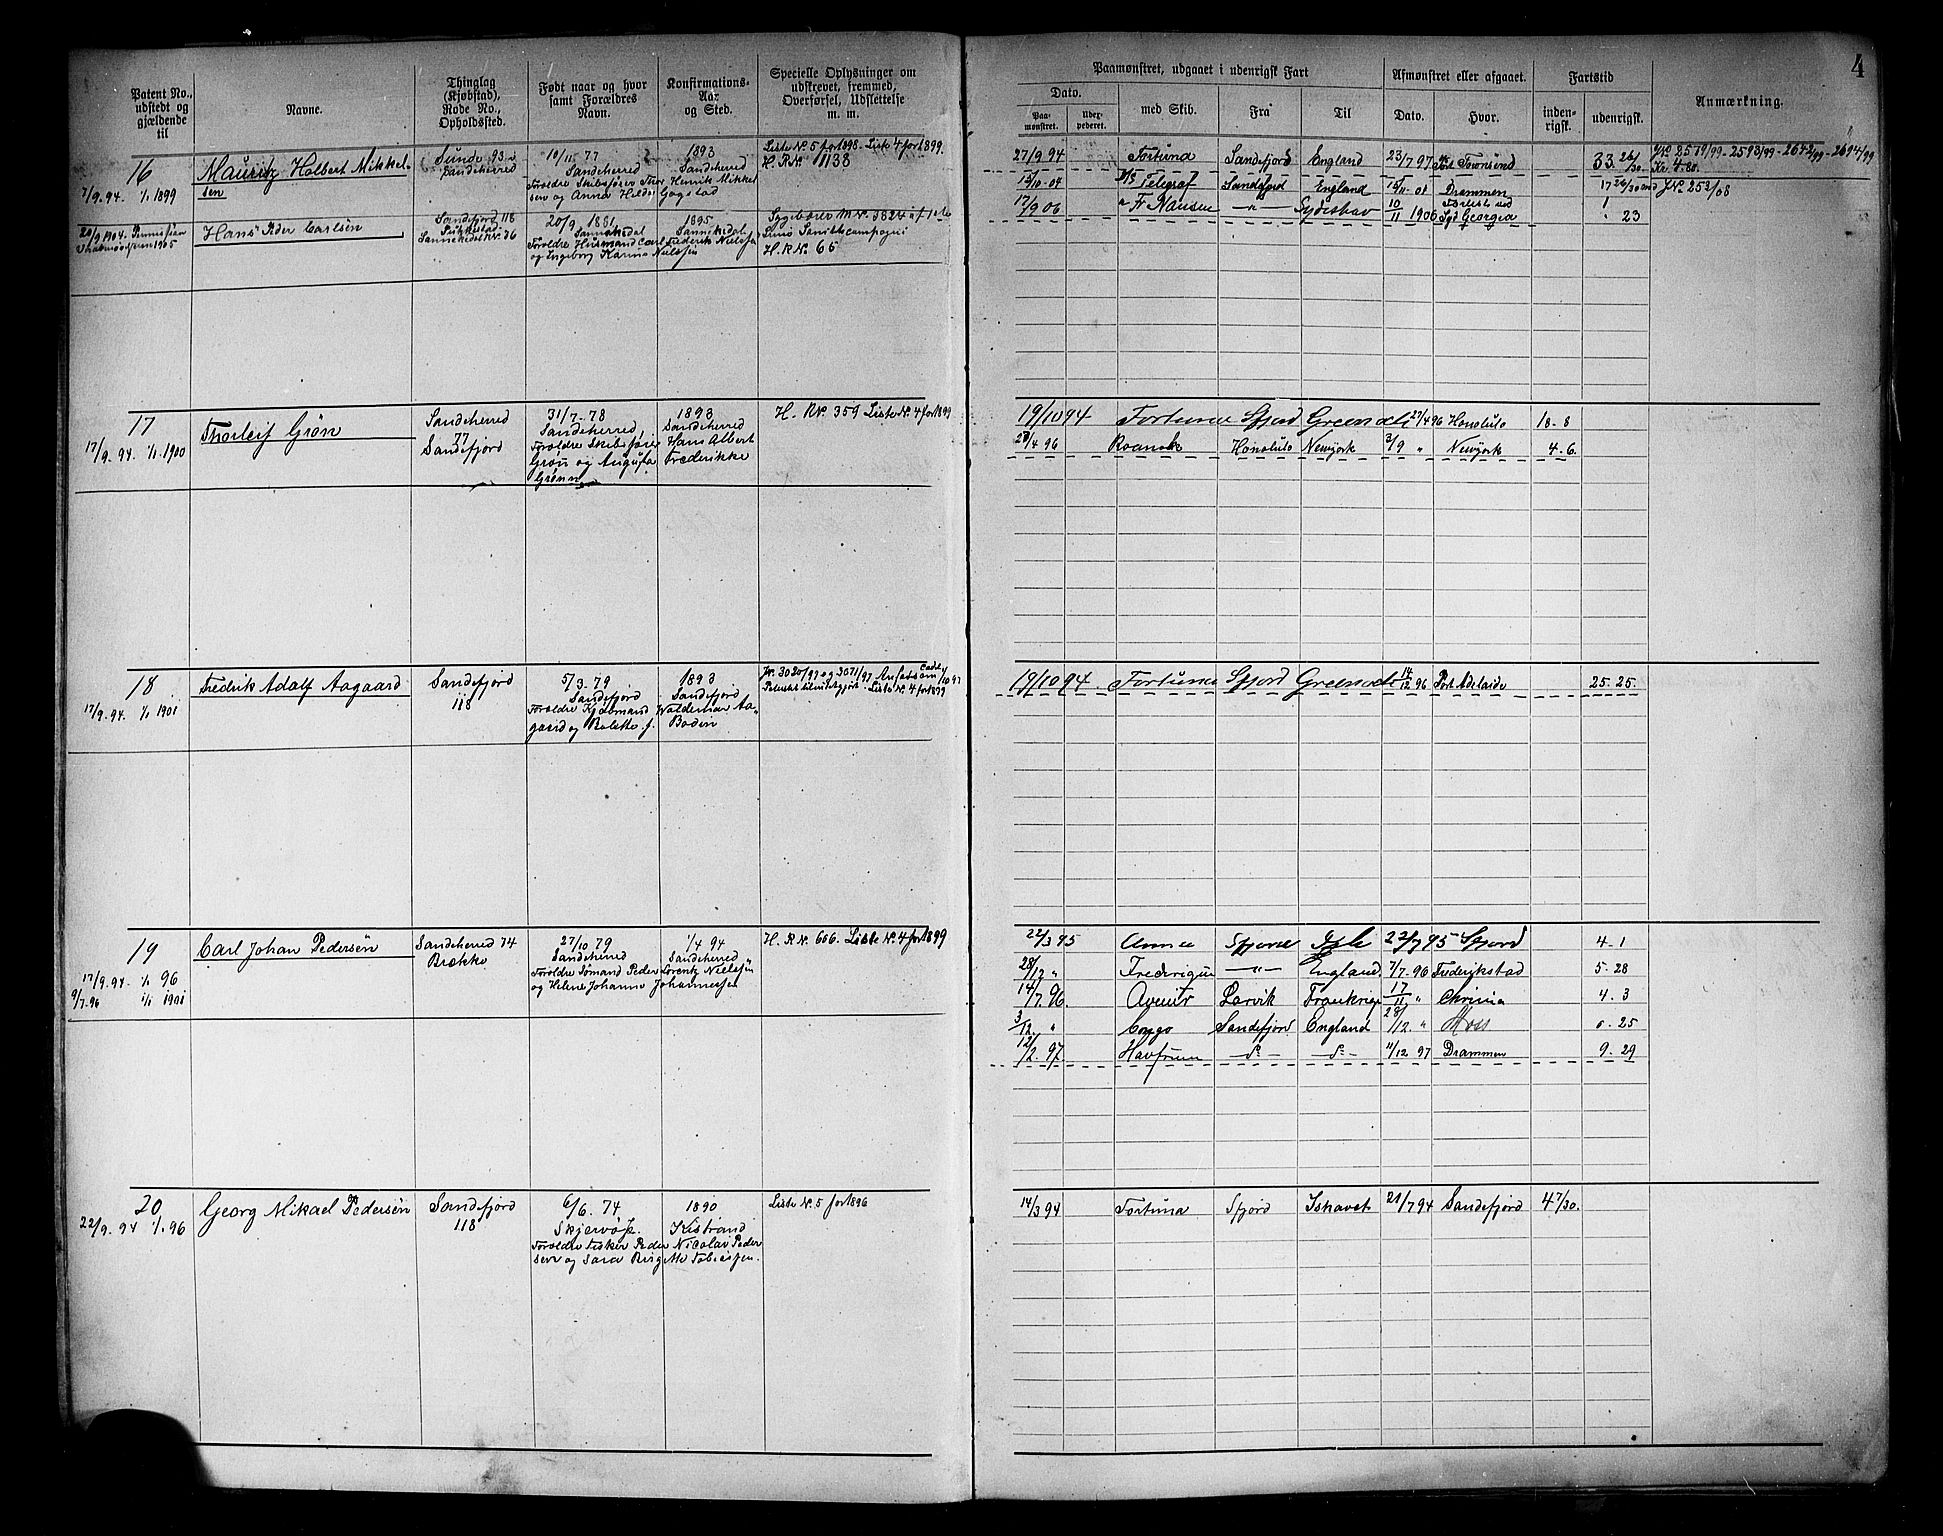 4
Patent No., udstedt og gjældende til
Navne.
Thinglag (Kjøbstad), Rode No., Opholdssted.
Født naar og hvor samt Forældres Navn.
Konfirmations-Aar og Sted.
Specielle Oplysninger om udskrevet, fremmed, Overførsel, Udslettelse m. m.
Paamønstret, udgaaet i udenrigsk Fart
Dato.
Paamønstret.
Udexpederet.
med Skib.
Fra
Til
Afmønstret eller afgaaet.
Dato.
Hvor.
Fartstid
indenrigsk.
udenrigsk.
Anmærkning.
16
7/9.94. 1/1 1899
Mauritz Halbert Mikkelsen
Sunde 93
Sandeherred
10/11 77
Sandeherred
Foroldre Skibsfører Thor Henrik Mikkelsen og Anna Gogstad
1893
Sandeherred
Liste N. 5 for 1898. Liste 4 for 1899.
H. R. N. 1138
27/9 94 Fortuna Sandefjord England 23/7 97 Port Townsend 33. 26/30
JN. 2579/99 - 2593/99 - 2642/99 - 2694/99
Kr. 4.80.
15/10-04 D/S Telegraf Sandefjord England 15/11-04 Drammen 1
JN. 253/08
17/9 06 " Fr Nansen —"— Sydishav 10/11 1906 Syd Georgia " 23
Hans Peder Carlsen
Sandefjord 118
Sannikedal N. 36
20/9 1881
Sannikedal
Foroldre Husmand Carl Frederik Nielsen og Ingeborg Karine Nielsen
1895
Sannikedal
Sygebærer M N. 3824 af 1ste
H. R. N. 65
17
17/9. 94. 1/1 1900
Thorleif Grøn
Sandeherred
77
Sandefjord
31/7-78
Sandeherred
Foroldre Skibsfører Hans Albert Grøn og Augusta Frederikke Grønn
1893
Sandeherred
H. R N. 359 Liste N. 4 for 1899
19/10 94 Fortuna Sfjord Greenock 27/4 96 Honolulo 18-8
28/4 96 Roanok Honolulo Newjork 3/9 " Newjork 4-6.
18
17/9.94. 1/1 1901
Fredrik Adolf Aagaard
Sandefjord
118
5/3.79
Sandefjord
Foroldre Kjøbmand Waldemar Aagaard og Bolette f. Bodin
1893
Sandefjord
JN. 3020/97 og 3071/97 Ansat som Cadet
Liste N. 4 for 1899
19/10 94. Fortuna Sfjord Greenock 14/12 96 Port Adelaide 25-25.
19
17/9.94. 1/1 96
9/7.96 1/1 1901
Carl Johan Pedersen
Sandeherred 74
Brække
27/10 79
Sandeherred
Foroldre Sømand Peder Lorentz Nielsen og Helene Johanne Johannessen
1/4 94
Sandeherred
H. R N. 606. Liste N. 4 for 1899
22/3 95 Anna Sfjord 22/7 95 Sfjord 4-1
28/12 " —"— England 7/7.96 Frederikstad 5-28
14/7.96. Avenir Larvik Frankrige 17/11 " Chrinia 4-3
3/12. " Congo Sandefjord England 28/12 " Moss 0-25
12/2. 97. Havfruen —d°— —d°— 11/12 97 Drammen 9-29
20
22/9.94 1/1.96
Georg Mikael Pedersen
Sandefjord
118
6/6.74
Skjervø
Foroldre Fisker Peder Nicolai Pedersen og Sara Birgitte Tobiassen.
1890
Kistrand
Liste N. 5 for 1896
14/3 94 Fortuna Sfjord Ishavet 21/7 94 Sandefjord 4 7/30.